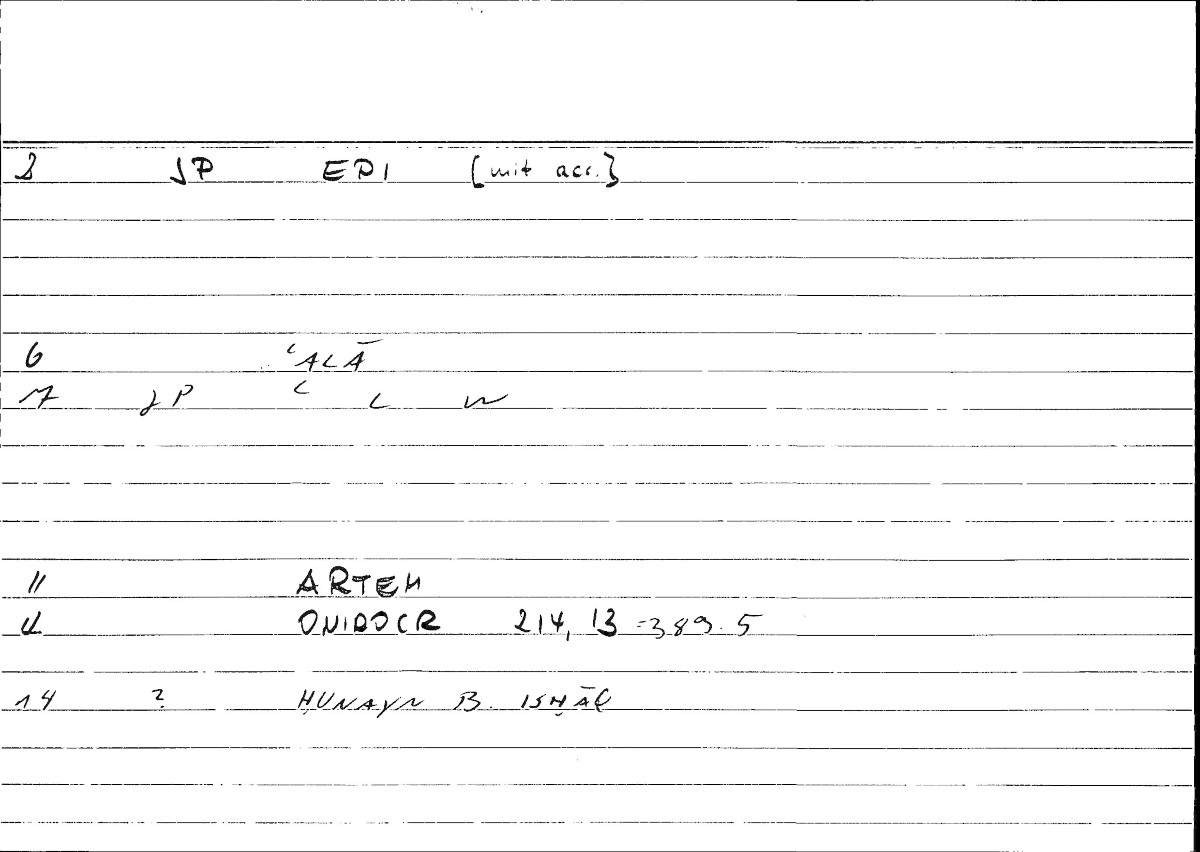 2 JP EPI [mit acc.]
6 ʿALĀ
7 JP ʿ L W
11 ARTEM
12 ONIROCR 214, 13 = 389.5
14 ? ḤUNAYN B. ISḤĀQ